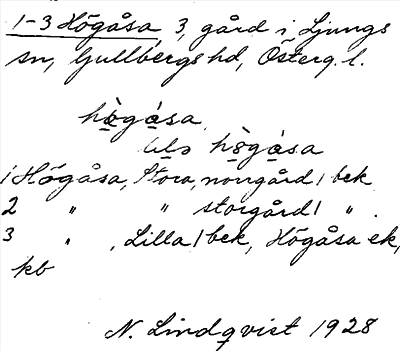 1-3 Högåsa, 3, gård i Ljungs
sn, Gullbergs hd, Österg. l.
hògása
hògàsa
1 Högåsa, Stora, norrgård / bek
2 " " storgård / " .
3 " , Lilla / bek, Högåsa ek,
kb
N. Lindqvist 1928